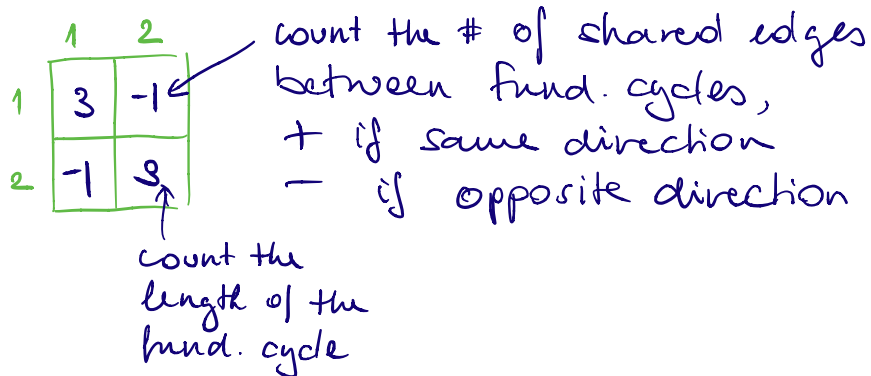 1 2
count the # of shared edges
1 3 -1
between fund. cycles,
+ if same direction
2 -1 3
- if opposite direction
count the
length of the
fund. cycle